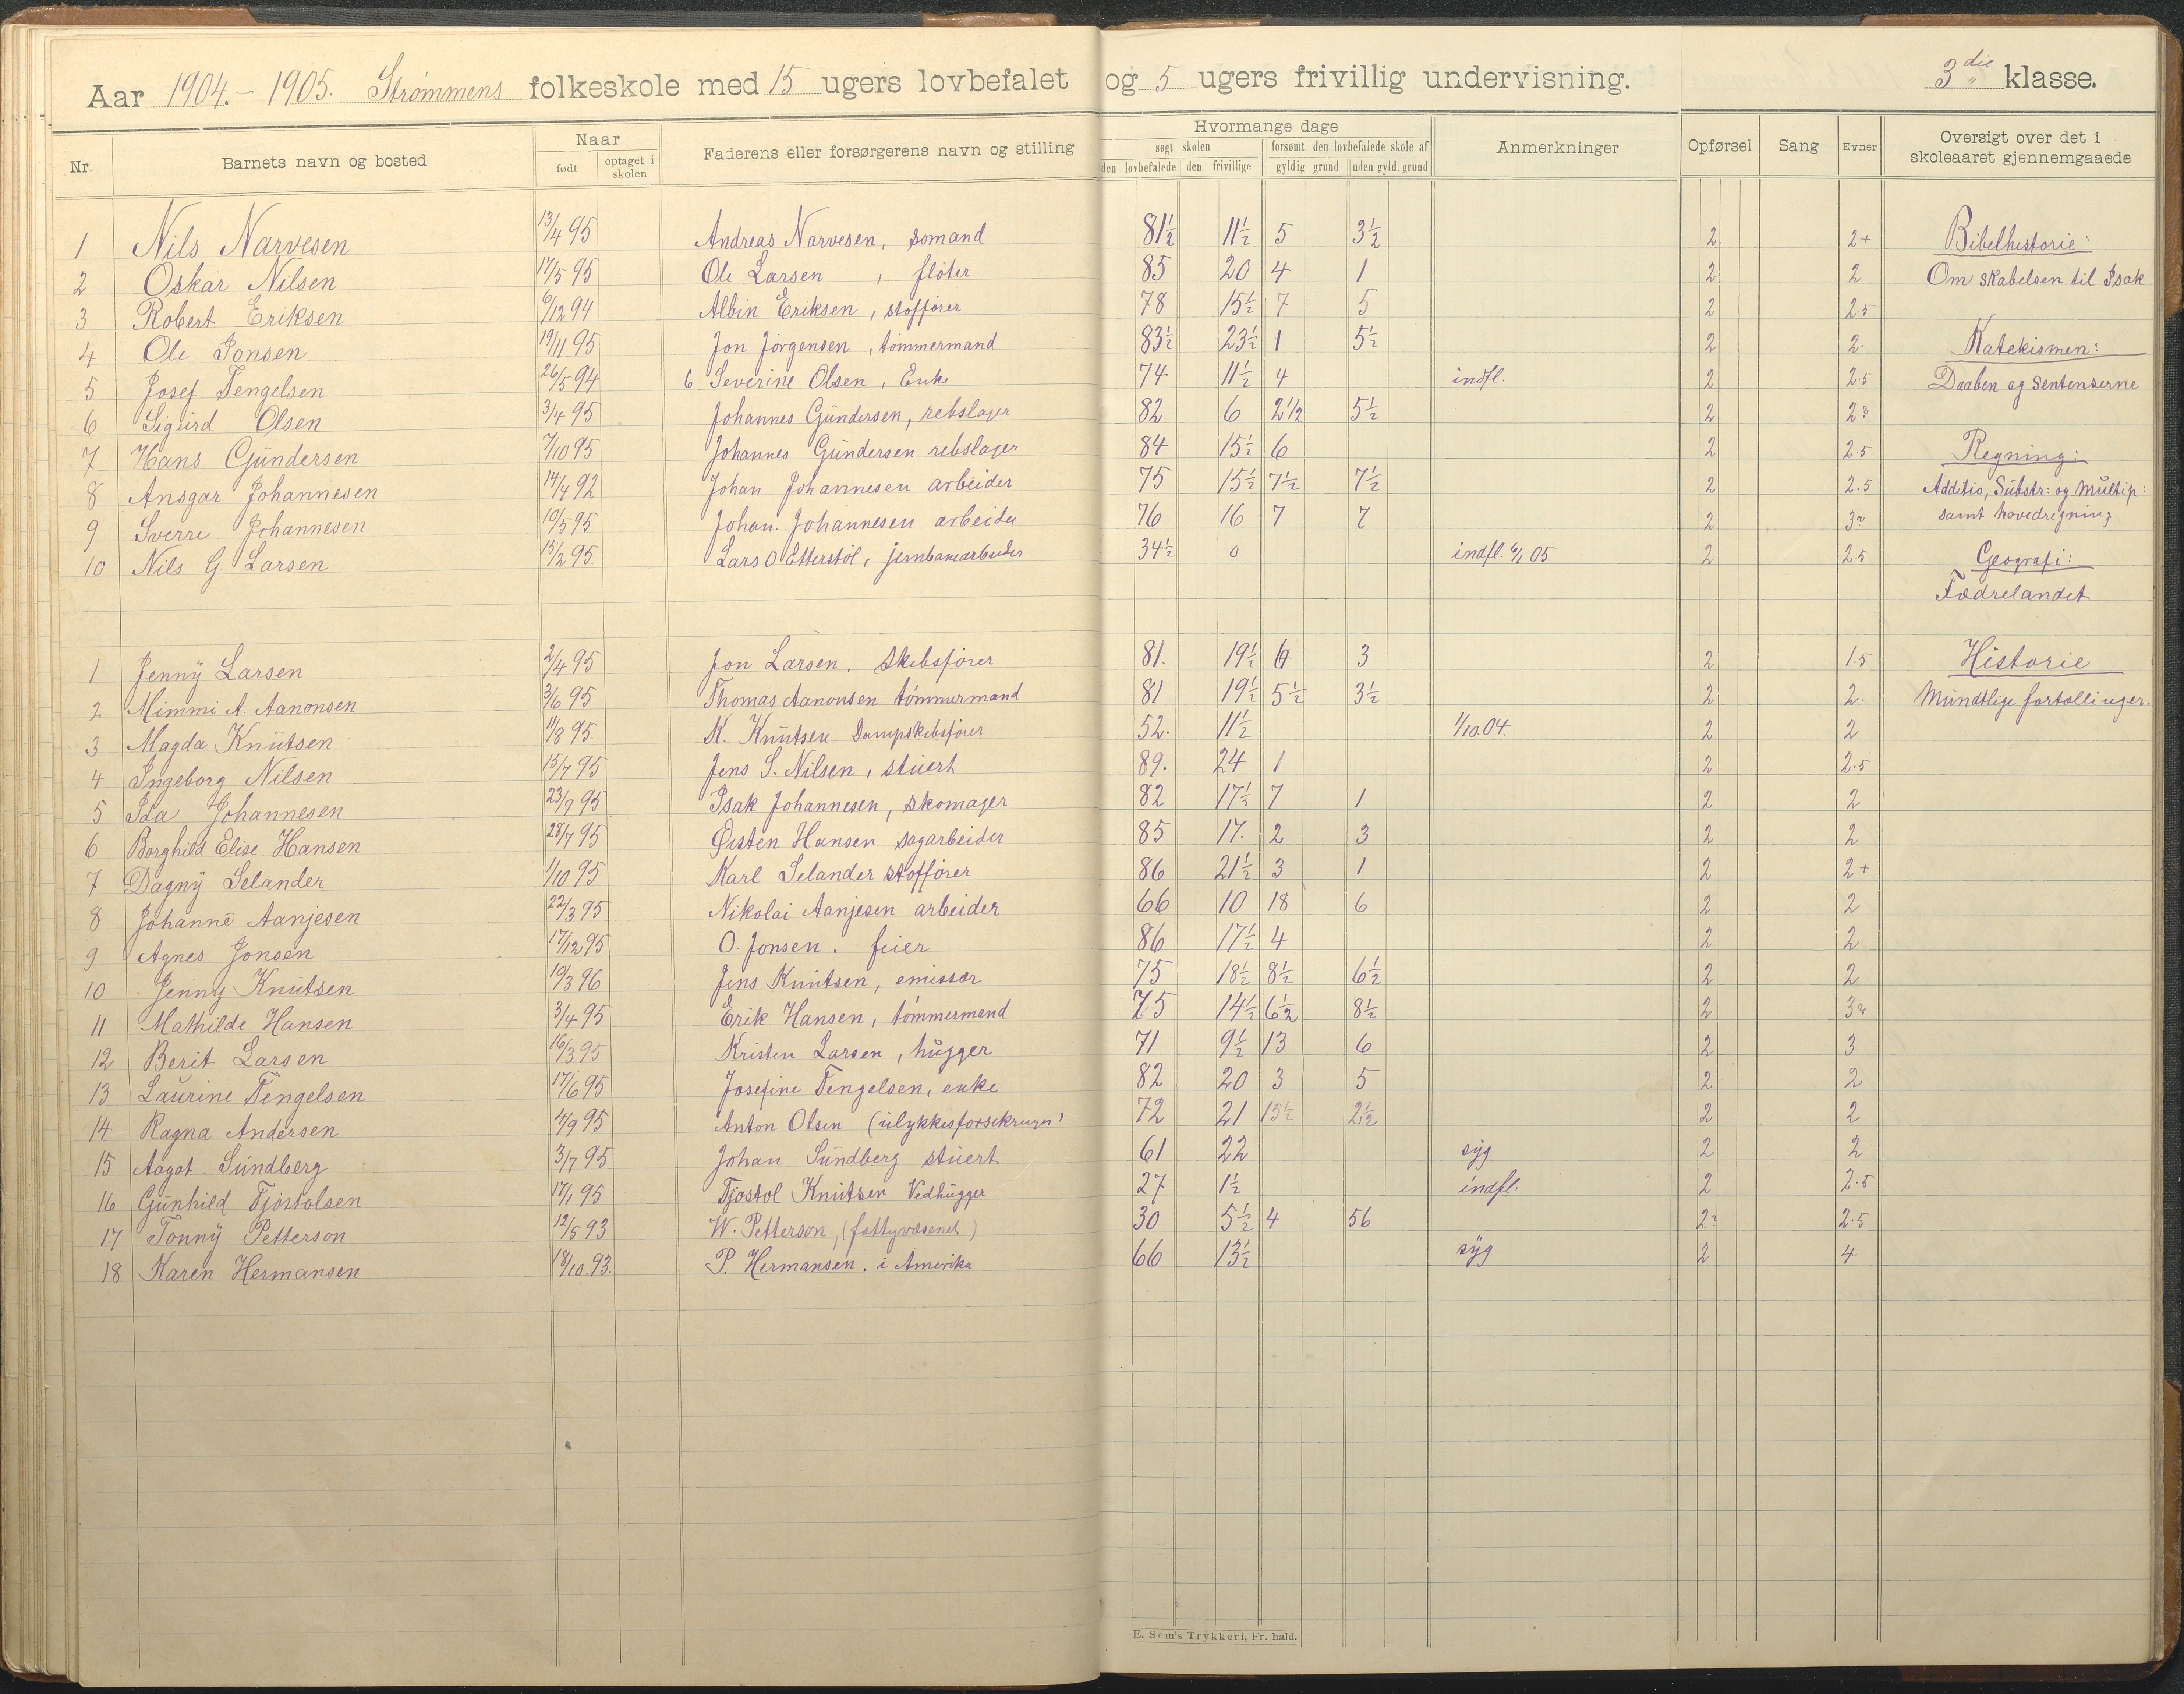 Aar 1904.-1905. Strømmens folkeskole med 15 ugers lovbefalet og 5 ugers frivillig undervisning. 3die klasse.
Nr. Barnets navn og bosted Naar født optaget i skolen Faderens eller forsørgerens navn og stilling Hvormange dage søgt skolen den lovbefalede den frivillige forsømt den lovbefalede skole af gyldig grund uden gyld. grund Anmerkninger Opførsel Sang Evner Oversigt over det i skoleaaret gjennemgaaede
1 Nils Narvesen 13/4 95 Andreas Narvesen, sømand 81½ 11½ 5 3½ 2 2+ Bibelhistorie:
2 Oskar Nilsen 17/5 95 Ole Larsen, fløter 85 20 4 1 2 2 Om skabelsen til Isak
3 Robert Eriksen 6/12 94 Albin Eriksen, skofører 78 15½ 7 5 2 2.5
4 Ole Jonsen 19/11 95 Jon Jørgensen, tømmermand 83½ 23½ 1 5½ 2 2. Katekismen:
5 Josef Tengelsen 26/5 94 Severine Olsen, Enke 74 11½ 4 indfl. 2 2.5 Daaben og Sentenserne
6 Sigurd Olsen 3/4 95 Johannes Gundersen, rebslager 82 6 2½ 5½ 2 2?
7 Hans Gundersen 7/10 95 Johannes Gundersen rebslager 84 15½ 6 2 2.5 Regning:
8 Ansgar Johannesen 14/4 92 Johan Johannesen arbeider 75 15½ 7½ 7½ 2 2.5 Additio, Substr: og Multip:
9 Sverre Johannesen 10/5 95 Johan. Johannesen arbeider 76 16 7 7 2 3? samt hovedregning
10 Nils G. Larsen 15/2 95. Lars O Etterstøl, jernbanearbeider 34½ 0 indfl. 6/1 05 2 2.5 Geografi:
Fædrelandet
1 Jenny Larsen 2/4 95 Jon Larsen. Skibsfører 81. 19½ 6 3 2 1.5 Historie
2 Mimmi A. Aanonsen 3/6 95 Thomas Aanonsen tømmermand 81 19½ 5½ 3½ 2 2. Mundtlige fortællinger.
3 Magda Knutsen 11/8 95. K. Knutsen Dampskibsfører 52. 11½ 1/10.04. 2 2
4 Ingeborg Nilsen 15/7 95 Jens S. Nilsen, stuert 89. 24 1 2 2.5
5 Ida Johannesen 23/9 95 Isak Johannesen, skomager 82 17½ 7 1 2 2
6 Borghild Elise Hansen 28/7 95 Øisten Hansen sagarbeider 85 17. 2 3 2 2
7 Dagny Selander 1/10 95 Karl Selander skofører 86 21½ 3 1 2 2+
8 Johanne Aanjesen 22/3 95 Nikolai Aanjesen arbeider 66 10 18 6 2 2
9 Agnes Jonsen 17/12 95 O. Jonsen. feier 86 17½ 4 2 2
10 Jenny Knutsen 10/3 96 Jens Knutsen, emissær 75 18½ 8½ 6½ 2 2
11 Mathilde Hansen 3/4 95 Erik Hansen, tømmermend 75 14½ 6½ 8½ 2 3?
12 Berit Larsen 16/3 95 Kristen Larsen, hugger 71 9½ 13 6 2 3
13 Laurine Tengelsen 17/6 95 Josefine Tengelsen, enke 82 20 3 5 2 2
14 Ragna Andersen 4/9 95 Anton Olsen 72 21 15½ 2½ 2 2
15 Aagot Sundberg 3/7 95 Johan Sundberg stuert 61 22 syg 2 2
16 Gunhild Tjøstolsen 17/1 95 Tjøstol Knutsen Vedhugger 27 1½ indfl. 2 2.5
17 Tonny Petterson 12/5 93 W. Petterson, (fattigvæsenet) 30 5½ 4 56 2? 2.5
18 Karen Hermansen 18/10.93. P. Hermansen. i Amerika 66 13½ syg 2 4.
E. Sem's Trykkeri, Fr. hald.